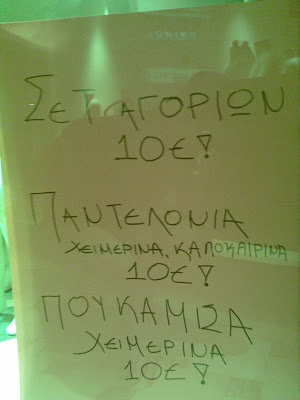 ΣΕΤ ΑΓΟΡΙΩΝ
10€!
ΠΑΝΤΕΛΟΝΙΑ
ΧΕΙΜΕΡΙΝΑ, ΚΑΛΟΚΑΙΡΙΝΑ
10€!
ΠΟΥΚΑΜΙΣΑ
ΧΕΙΜΕΡΙΝΑ
10€!